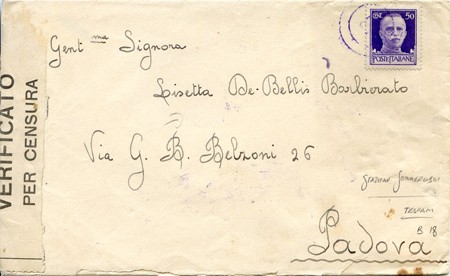 VERIFICATO
PER CENSURA
CENT. 50
POSTE ITALIANE
Gent ma Signora
Lisetta De-Bellis Barbiorato
Via G. B. Belzoni 26
TRAPANI
B 18
Padova